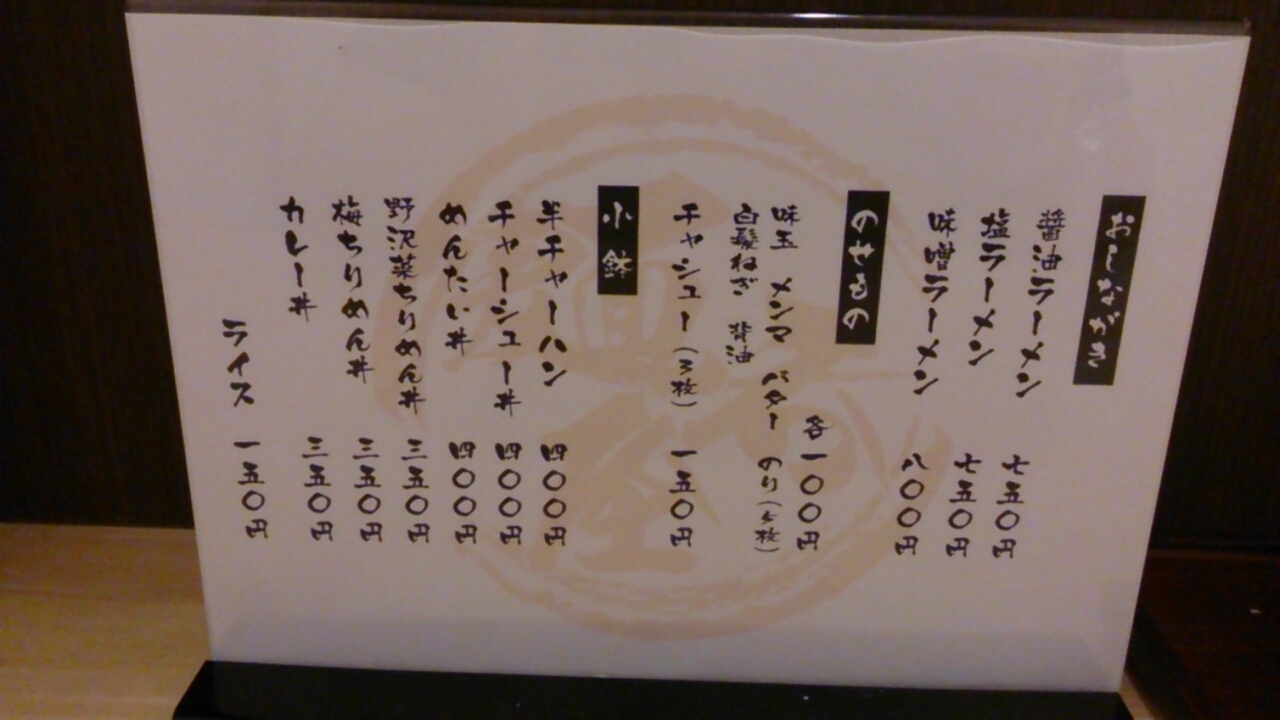 おしながき
醤油ラーメン 七五〇円
塩ラーメン 七五〇円
味噌ラーメン 八〇〇円
のせもの
各一〇〇円
味玉 メンマ バター のり(5枚)
白髪ねぎ 背油
チャシュー(3枚) 一五〇円
小鉢
半チャーハン 四〇〇円
チャーシュー丼 四〇〇円
めんたい丼 四〇〇円
野沢菜ちりめん丼 三五〇円
梅ちりめん丼 三五〇円
カレー丼 三五〇円
ライス 一五〇円